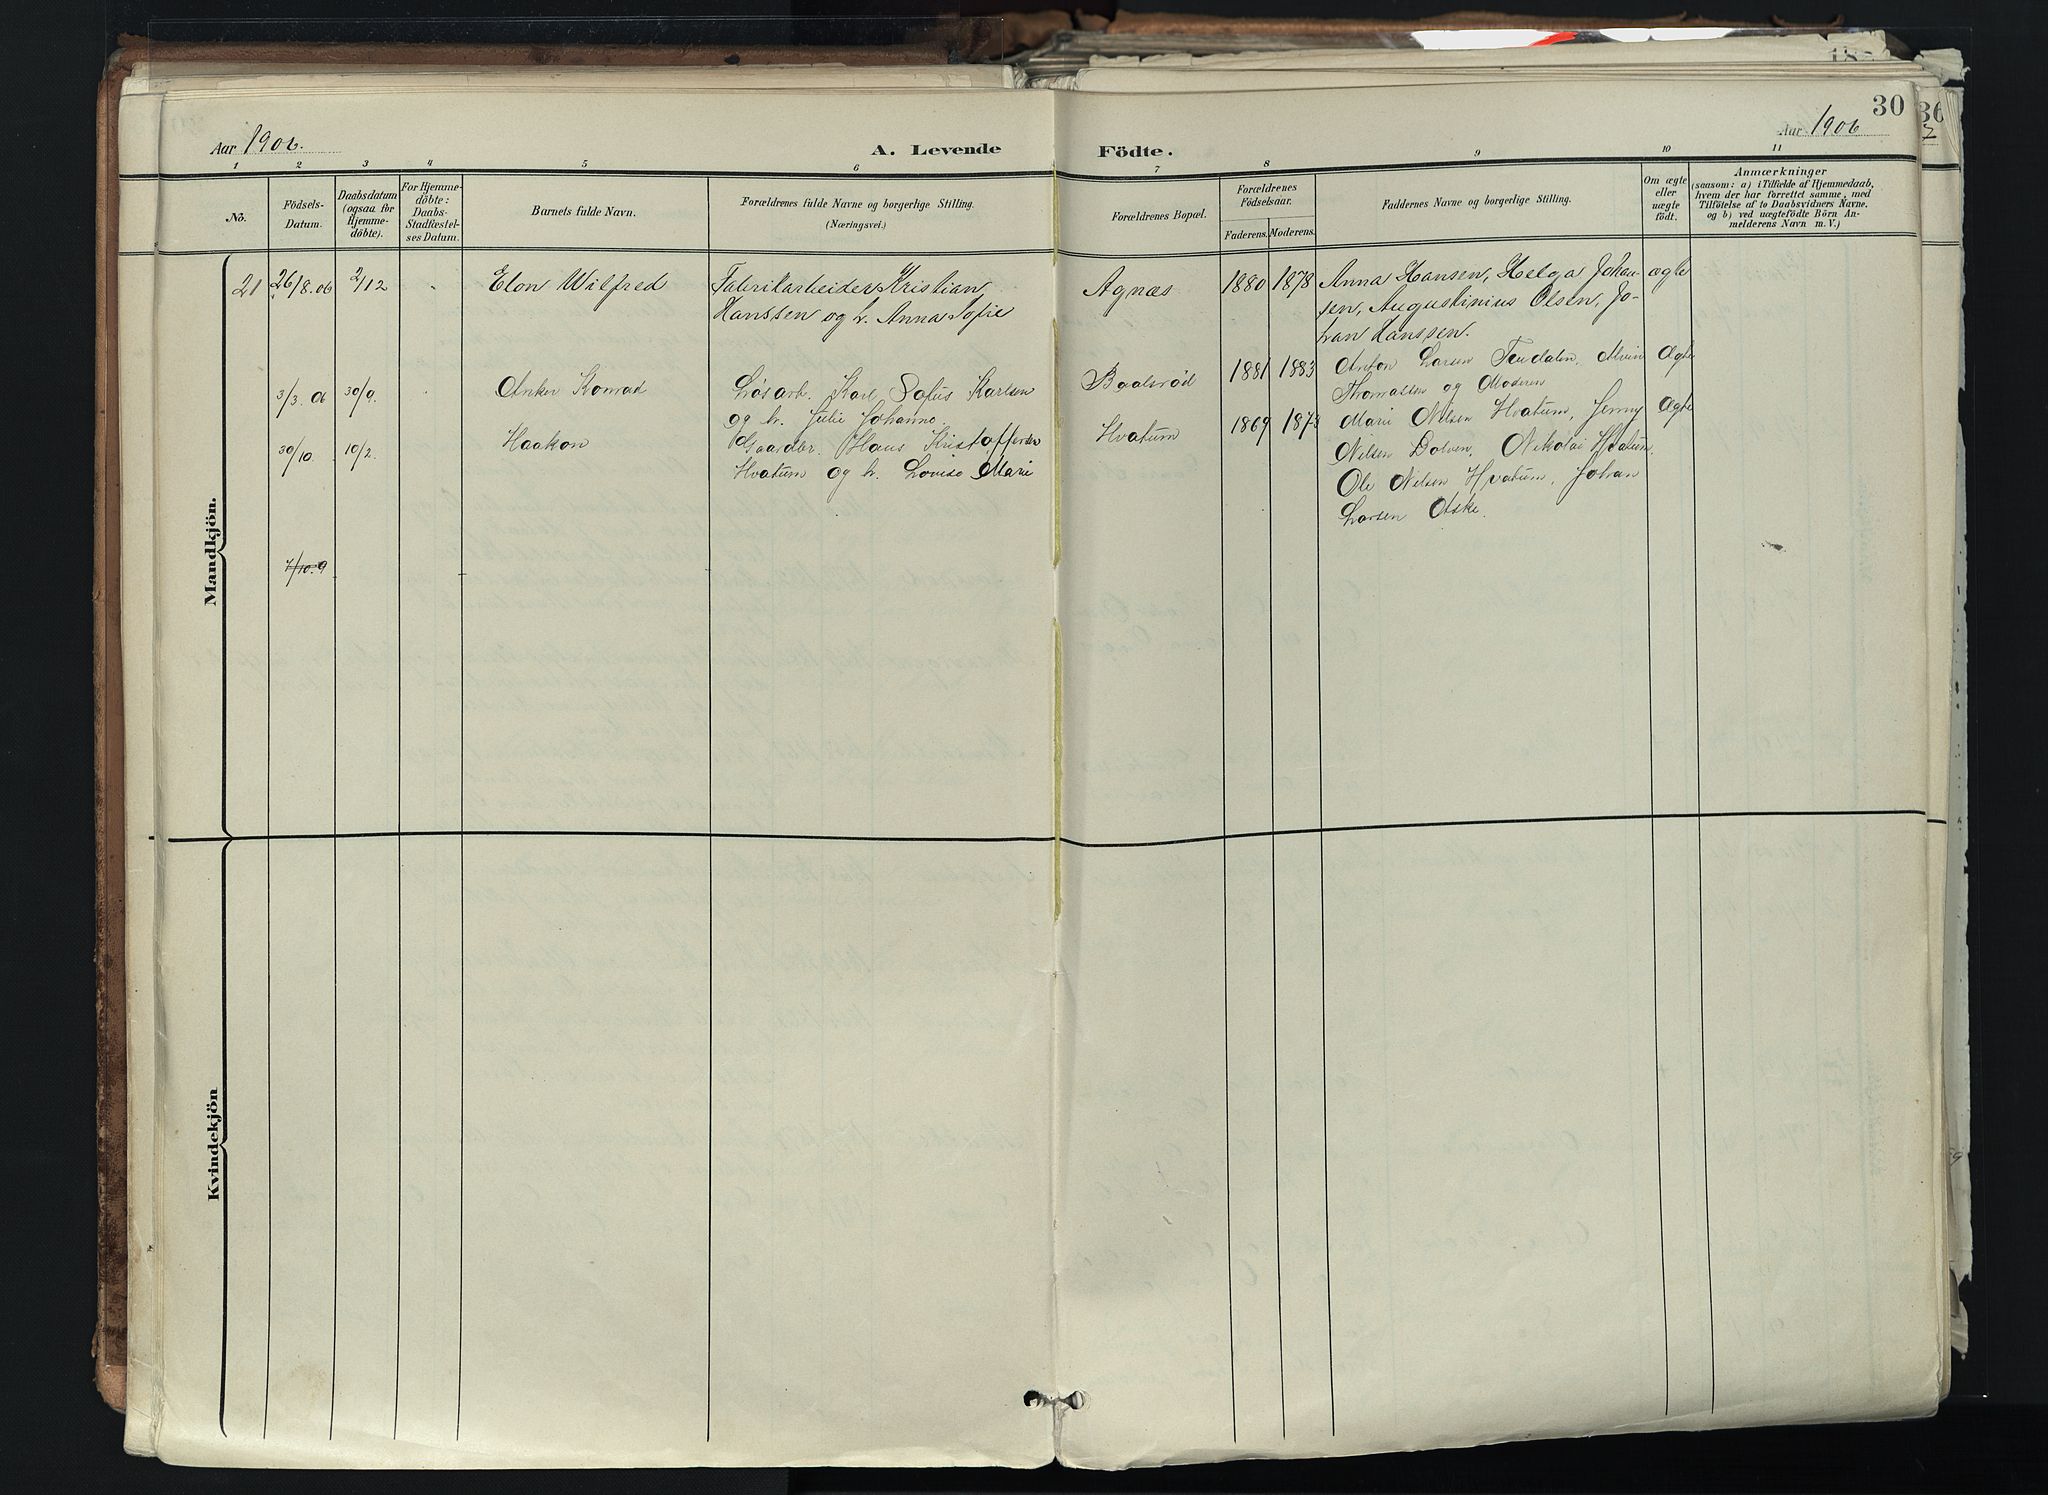 30
Aar 1906.
A. Levende
Födte.
Aar 1906
1 2 3 4 5 6 7 8 9 10 11
No.
Födsels-
Datum.
Daabsdatum
(ogsaa for
Hjemme-
döbte).
For Hjemme-
döbte:
Daabs-
Stadfæstel-
ses Datum.
Barnets fulde Navn.
Forældrenes fulde Navne og borgerlige Stilling.
(Næringsvei.)
Forældrenes Bopæl.
Forældrenes
Födselsaar.
Faderens. Moderens.
Faddernes Navne og borgerlige Stilling.
Om ægte
eller
uægte
födt.
Anmærkninger
(saasom: a) i Tilfælde af Hjemmedaab,
hvem der har forrettet samme, med
Tilföielse af to Daabsvidners Navne.
og b) ved uægtefödte Börn An-
melderens Navn m. V.)
Mandkjön.
21 26/8.06 2/12 Elon Wilfred Fabrikarbeider Kristian Agnæs 1880 1878 Anna Hansen, Helga Johan- ægte
Hanssen og h. Anna Sofie sen, Augustinius Olsen, Jo-
han Hanssen.
3/3.06 30/9. Anker Konrad Løsarb. Karl Sofus Karlsen Baalsrød 1881 1883 Anton Larsen Alvin Ægte
og h. Julie Johanne Thomassen og Moderen
30/10. 10/2. Haakon Gaardbr. Hans Kristoffersen Hvatum 1869 1873 Mari Nilsen Hvatum, Jenny Ægte
Hvatum og h. Lovise Marie Nilsen Bolven, Nikolai Hvatum,
Ole Nilsen Hvatum, Johan
Larsen Aske.
7/10.9
Kvindekjön